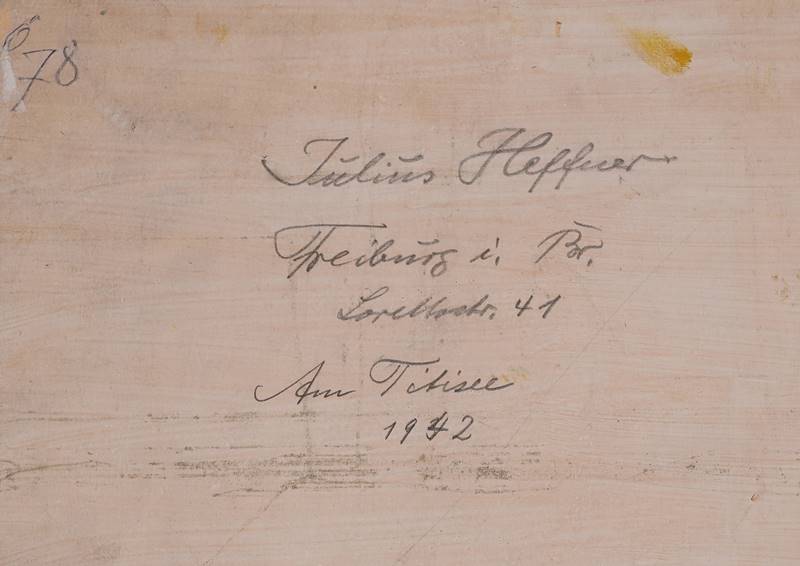 Ö
78
Julius Heffner
Freiburg i. Br.
Lorettostr. 41
Am Titisee
1942